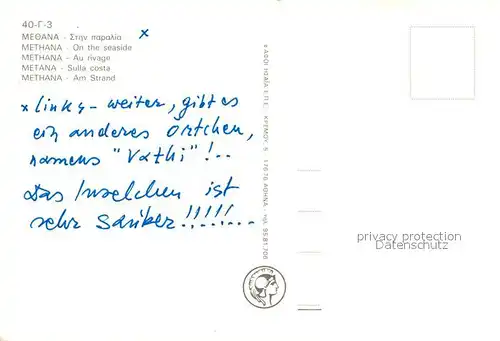 40-Γ-3
ΜΕΘΑΝΑ - Στην παραλία x
METHANA - On the seaside
METHANA - Au rivage
METANA - Sulla costa
METHANA - Am Strand
x links - weiter, gibt es
ein anderes Örtchen,
namens "Vathi"!..
Das Inselchen ist
sehr sauber!!!!!...
privacy protection
Datenschutz